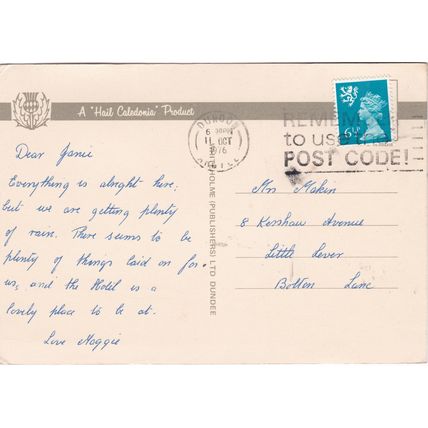 A "Hail Caledonia" Product
DUNOON
6 30PM
11 OCT
1976
ARGYLL
REMEM
to use
POST CODE!
6½P
Dear Janie
Everything is alright here;
but we are getting plenty
of rain. There seems to be
plenty of things laid on for
us, and the Hotel is a
lovely place to be at.
Love Maggie
WHITEHOLME (PUBLISHERS) LTD DUNDEE
Mrs Makin
8 Kershaw Avenue
Little Lever
Bolton Lanc